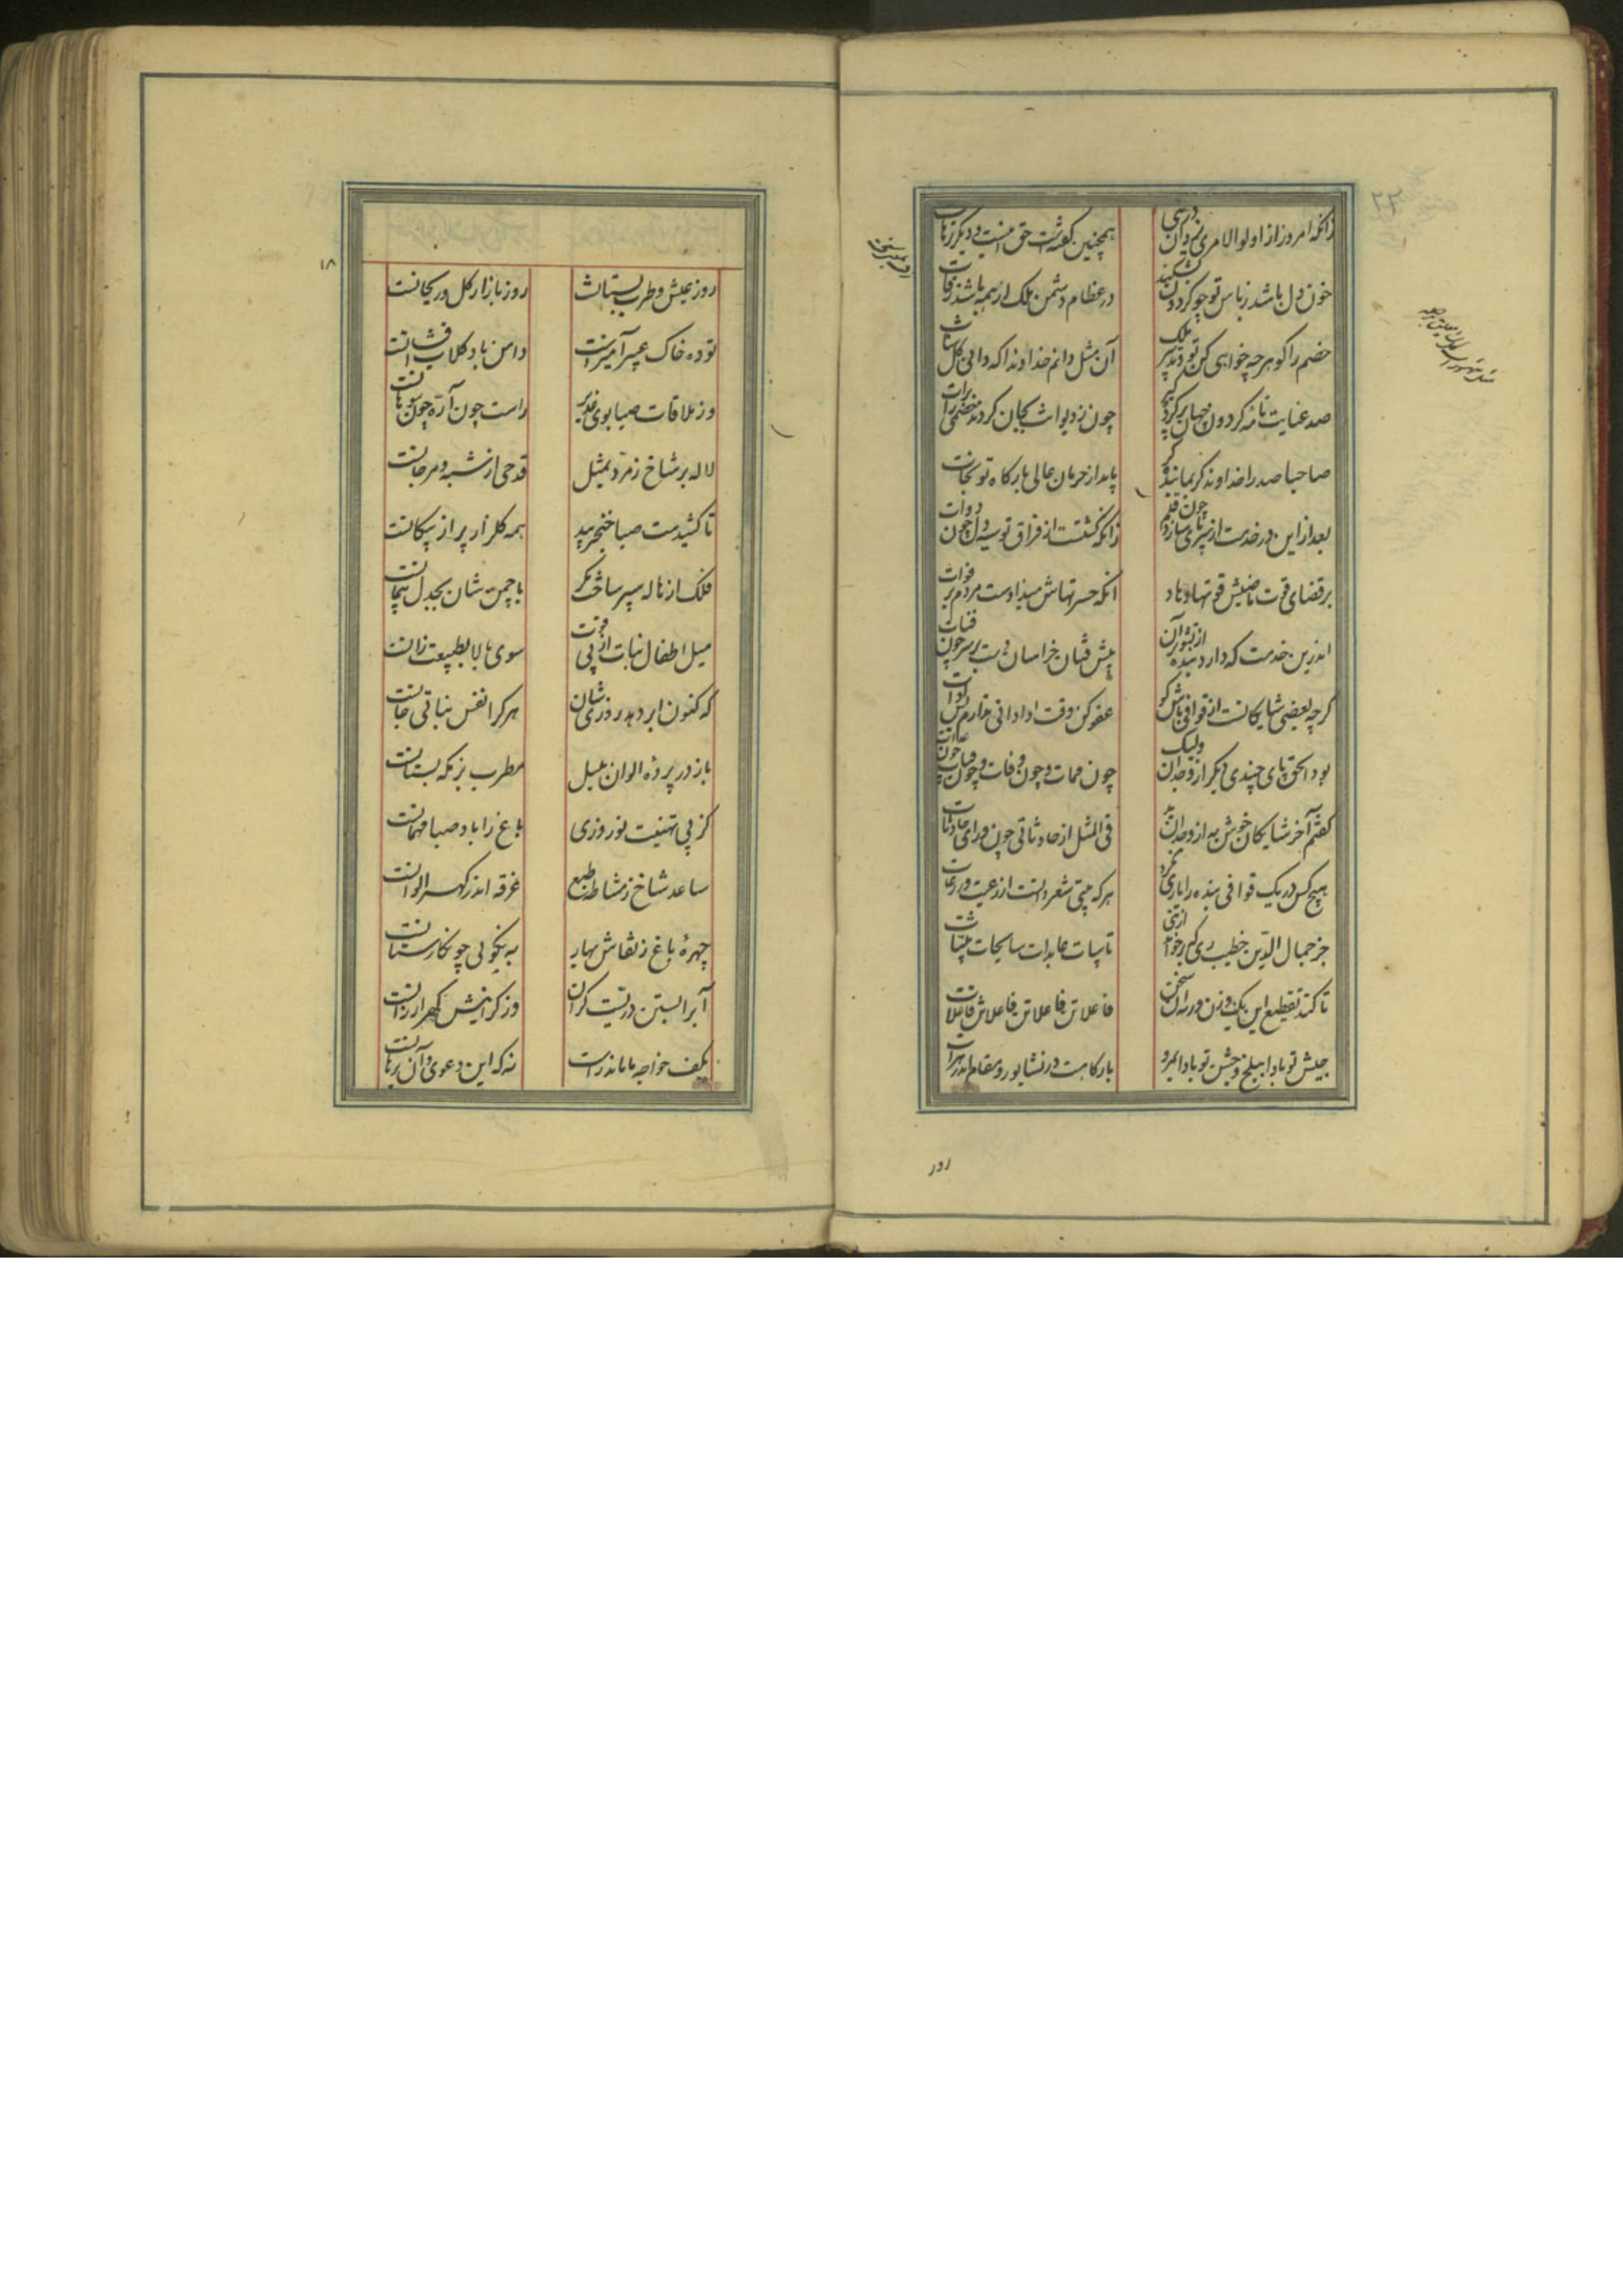 ۲۲
زانکه امروز از اولوالامری و یزدان در نبی
همچنین گفتست حق اینست و دیگر ترهات
خون دل باشد ز باس تو چو گردون بشکند
در عظام دشمن ملک ار همه باشد رفات
خصم را گو هر چه خواهی کن تو و تدبیر ملک
آن مثل دانم خداوندا که دانی کل شات
صد عنایت نامه گردون جهان بر کرد
چون نزدیوانش بجان کردند خصمی را برات
صاحبا صدرا خداوندا کریما بنده گر
باید از حرمان عالی بارگاه تو نجات
بعد از این در خدمتت از سر پای سازد چون قلم
زانکه گشتست از فراق تو سیه دل چون دوات
بر قضای فوت ماضیش قوتها و باد
آنکه حسرتهاش میدادست مردم بر فوات
اندرین خدمت که دارد بنده از تشویر آن
پیش فتیان خراسان دست بر سر چون فتات
گرچه بعضی شایگانست از قوافی باش گو
عفو کن وقت ادا دانی ندارم بس ادات
بود الحق تای چندی دیگر از وحدان ولیک
چون ممات و چون وفات و چون
گفتم آخر شایگان خوش به از وحدان بد
فی المثل از حادثاتی چون ورای حادثات
هیچکس در یک قوافی بنده را یاری نکرد
هر که بیتی شعر دانست از رعیت وز رعات
جز جمال الدین خطیب ری که بر خواند از نبی
تایبات عابدات سایحات ثیبات
تا کند تقطیع این یک وزن وزان سخن
فاعلاتن فاعلاتن فاعلاتن فاعلات
جیش تو بادا ببلخ و جشن تو بادا بمرو
بارگاهت در نشابور و مقام اندر هرات
روز
۱۸
روز عیش و طرب بستانست
روز بازار گل و ریحانست
توده خاک عبیر آمیزست
دامن باد گلاب افشانست
وز ملاقات صبا بوی غدیر
راست چون آزده سوهانست
لاله بر شاخ زمرد بمثل
قدحی از شبه و مرجانست
تا کشیدست صبا خنجر بید
همه گلزار پر از پیکانست
فلک از هاله سپر ساخت مگر
با چمنشان بجدل پیمانست
میل اطفال نبات از پی قوت
سوی بالا بطبیعت زانست
که کنون ابر دهد روزیشان
هر کرا نفس نباتی جانست
باز در پرده الوان بلبل
مطرب بزمگه بستانست
کز پی تهنیت نوروزی
باغ را باد صبا مهمانست
ساعد شاخ ز مشاطه طبع
غرقه اندر گهر الوانست
چهره باغ ز نقاش بهار
به نیکویی چو نگارستانست
ابر آبستن دریست گران
وز گرانیش گهر ارزانست
بکف خواجه ما ماندراست
نه که این دعوی و آن برهانست